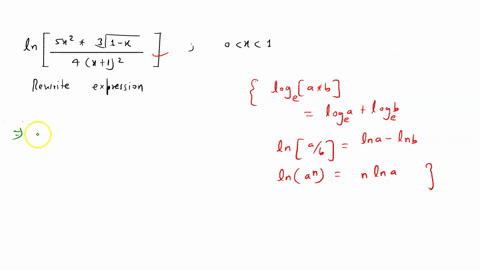 ln [ 5x² * ∛(1-x) / 4 (x+1)² ] ; 0 < x < 1
Rewrite expression
{ logₑ [a*b]
= logₑa + logₑb
ln [a/b] = ln a - ln b
ln (aⁿ) = n ln a }
⇒